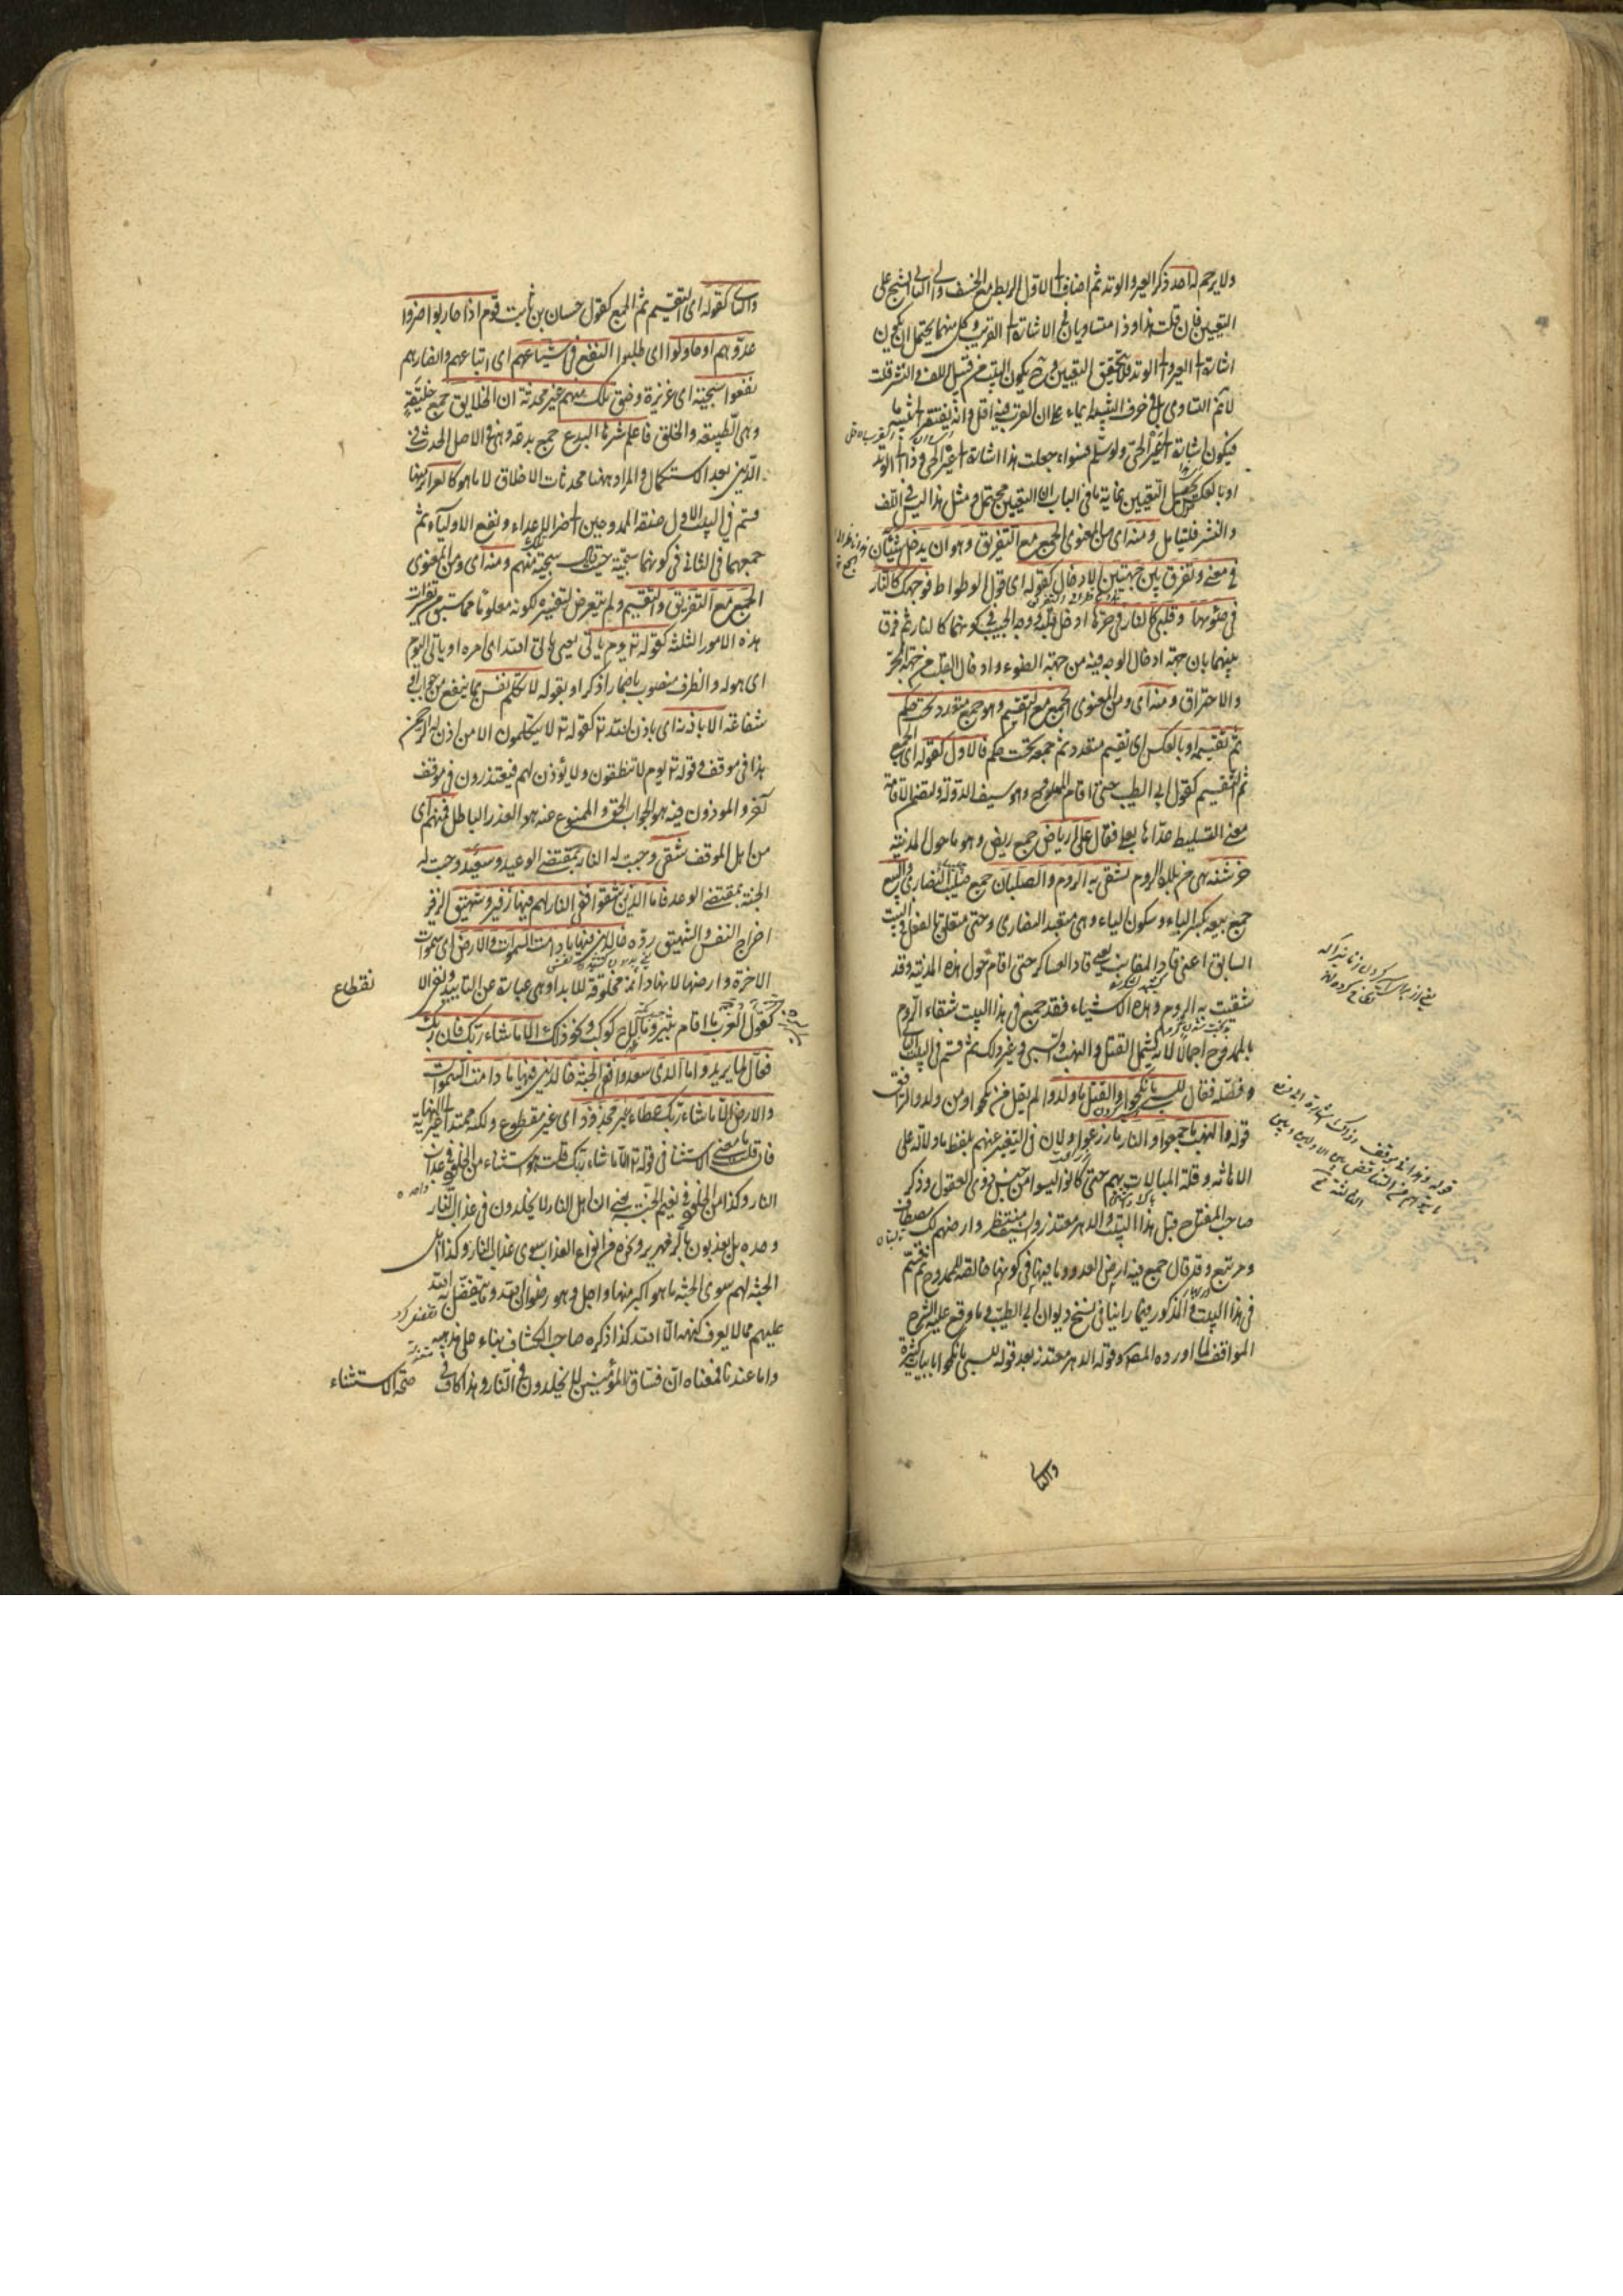 ولا يرحم له احد ذكر العير والوتد ثم اضاف الى الاول الربط مع الخسف والى الثاني الشج على
التعيين فان قلت هذا وذا متساويان في الاشارة الى القريب وكل منهما يحتمل ان يكون
اشارة الى العير والى الوتد فلا يتحقق التعيين وح يكون البيت من قبيل اللف والنشر قلت
لا نم التساوي بل في حرف التنبيه ايماء الى ان القرب فيه اقل وانه يفتقر الى تنبيه ما
فيكون اشارة الى عير الحي ولو سلم فسواء جعلت هذا اشارة الى عير الحي وذا الى الوتد
او بالعكس يحصل التعيين غاية ما في الباب ان التعيين محتمل ومثل هذا ليس في اللف
والنشر فليتامل ومنه اى من المعنوي الجمع مع التفريق وهو ان يدخل شيئان
في معنى وتفرق بين جهتي الادخال كقوله اى قول الوطواط فوجهك كالنار
في ضوئها وقلبي كالنار في حرها ادخل قلبه ووجه الحبيب في كونهما كالنار ثم فرق
بينهما بان جهة ادخال الوجه فيه من جهة الضوء وادخال القلب من جهة الحر
والاحتراق ومنه اى ومن المعنوي الجمع مع التقسيم وهو جمع متعدد تحت حكم
ثم تقسيمه او بالعكس اى تقسيم متعدد ثم جمعه تحت حكم فالاول كقوله اى الجمع
ثم التقسيم كقول ابي الطيب حتى اقام الممدوح وهو سيف الدولة ولتضمن الاقامة
معنى التسليط عداها بعلى فقال على ارباض جمع ربض وهو ما حول المدينة
خرشنة هي من بلاد الروم تشقى به الروم والصلبان جمع صليب النصارى والبيع
جمع بيعة بكسر الباء وسكون الياء وهي متعبد النصارى وحتى متعلق بالفعل في البيت
السابق اعني قاد المقانب يعني قاد العساكر حتى اقام حول هذه المدينة وقد
شقيت به الروم وهذه الاشياء فقد جمع في هذا البيت شقاء الروم
بالممدوح اجمالا لانه يشمل القتل والنهب والسبي وغير ذلك ثم قسم في البيت الثاني
وفصله فقال للسبي ما نكحوا والقتل ما ولدوا لم يقل من نكحوا ومن ولدوا ليوافق
قوله والنهب ما جمعوا والنار ما زرعوا ولان في التعبير عنهم بلفظ ما دلالة على
الاهانة وقلة المبالات بهم حتى كانوا ليسوا من جنس ذوي العقول وذكر
صاحب المفتاح قبل هذا البيت والدهر معتذر والسيف منتظر وارضهم لك مصطاف
ومرتبع وقد قال جمع فيه ارض العدو وما فيها في كونها خالصة للممدوح ثم قسم
في هذا البيت والمذكور فيما راينا في نسخ ديوان ابي الطيب وما وقع عليه الشرح
الموافق لما اورده المصـ وقوله الدهر معتذر بعد قوله للسبي ما نكحوا بابيات كثيرة
والثاني
والثاني كقوله اى التقسيم ثم الجمع كقول حسان بن ثابت قوم اذا حاربوا ضروا
عدوهم او حاولوا اى طلبوا النفع في اشياعهم اى اتباعهم وانصارهم
نفعوا سجية اى غريزة وخلق تلك منهم غير محدثة ان الخلايق جمع خليقة
وهي الطبيعة والخلق فاعلم شرها البدع جمع بدعة وهي في الاصل الحدث في
الدين بعد الاستكمال والمراد ههنا محدثات الاخلاق لا ما هو كالغرائز منها
قسم في البيت الاول صفة الممدوحين الى ضر الاعداء ونفع الاولياء ثم
جمعهما في الثاني في كونهما سجية حيث قال سجية تلك منهم ومنه اى ومن المعنوي
الجمع مع التفريق والتقسيم ولم يتعرض لتفسيره لكونه معلوما مما سبق من تفسيرات
هذه الامور الثلثة كقوله تع يوم ياتي يعني ياتي الله اى امره او ياتي اليوم
اى هوله والظرف منصوب باضمار اذكر او بقوله لا تكلم نفس بما ينفع من جواب او
شفاعة الا باذنه اى باذن الله تع كقوله تع لا يتكلمون الا من اذن له الرحمن
هذا في موقف وقوله تع يوم لا ينطقون ولا يؤذن لهم فيعتذرون في موقف
آخر والماذون فيه هو الجواب الحق والممنوع عنه هو العذر الباطل فمنهم اى
من اهل الموقف شقي وجبت له النار بمقتضى الوعيد وسعيد وجبت له
الجنة بمقتضى الوعد فاما الذين شقوا ففي النار لهم فيها زفير وشهيق الزفير
اخراج النفس والشهيق رده خالدين فيها ما دامت السموات والارض اى سموات
الاخرة وارضها لانها دائمة مخلوقة للابد او هي عبارة عن التابيد ونفي الا
نقطاع
كقول العرب ما اقام ثبير وما لاح كوكب ونحو ذلك الا ما شاء ربك ان ربك
فعال لما يريد واما الذين سعدوا ففي الجنة خالدين فيها ما دامت السموات
والارض الا ما شاء ربك عطاء غير مجذوذ اى غير مقطوع ولكنه ممتد الى غير النهاية
فان قلت ما معنى الاستثنا في قوله تع الا ما شاء ربك قلت هو استثناء من الخلود في عذاب
النار وكذا من الخلود في نعيم الجنة يعني ان اهل النار لا يخلدون في عذاب النار
وحده بل يعذبون بالزمهرير ونحوه من انواع العذاب سوى عذاب النار وكذا اهل
الجنة لهم سوى الجنة ما هو اكبر منها واجل وهو رضوان الله وما يتفضل به الله
عليهم مما لا يعرف كنهه الا الله كذا ذكره صاحب الكشاف بناء على مذهبه
واما عندنا فمعناه ان فساق المؤمنين لا يخلدون في النار وهذا كاف في صحة الاستثناء